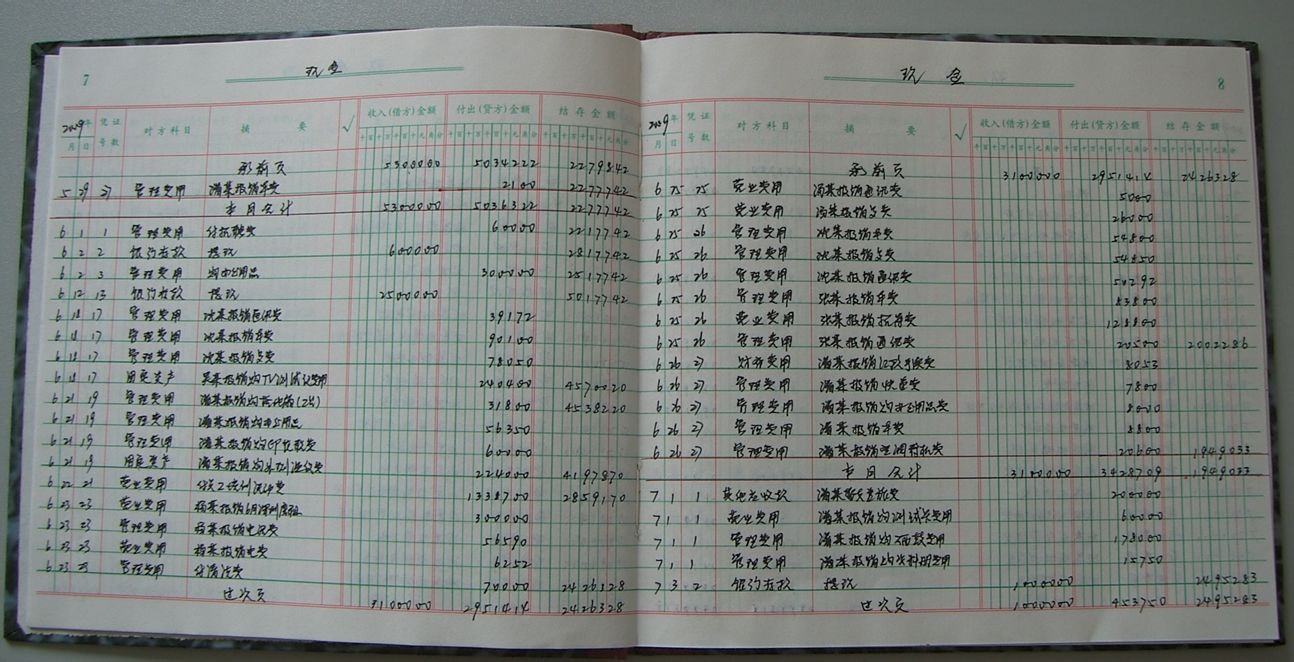 7
现金
2009年 凭证号数 对方科目 摘要 √ 收入(借方)金额 付出(贷方)金额 结存金额
月 日 千百十千百十元角分 千百十千百十元角分 千百十千百十元角分
承前页 5300000 5034222 2279842
5 29 27 管理费用 潘某报销车费 2100 2277742
本月合计 5300000 5036322 2277742
6 1 1 管理费用 付招聘费 60000 2217742
6 2 2 银行存款 提现 600000 2817742
6 2 3 管理费用 购办公用品 300000 2517742
6 12 13 银行存款 提现 2500000 5017742
6 18 17 管理费用 沈某报销通讯费 39172
6 18 17 管理费用 沈某报销车费 90100
6 18 17 管理费用 沈某报销点费 78050
6 18 17 固定资产 吴某报销购TV测试仪费用 240400 4570020
6 21 19 管理费用 潘某报销购 31800 4538220
6 21 19 管理费用 潘某报销购办公用品 56350
6 21 19 管理费用 潘某报销购印花税费 60000
6 21 19 固定资产 潘某报销购 224000 4197870
6 22 21 营业费用 1338700 2859170
6 23 23 营业费用 杨某报销6月深圳房租 300000
6 23 23 管理费用 杨某报销电话费 56590
6 23 23 营业费用 杨某报销电费 6252
6 23 25 管理费用 付清洁费 70000 2426328
过次页 3100000 2951414 2426328
现金
8
2009年 凭证号数 对方科目 摘要 √ 收入(借方)金额 付出(贷方)金额 结存金额
月 日 千百十千百十元角分 千百十千百十元角分 千百十千百十元角分
承前页 3100000 2951414 2426328
6 25 25 营业费用 潘某报销通讯费 5000
6 25 25 营业费用 潘某报销点费 26000
6 25 26 管理费用 沈某报销车费 54800
6 25 26 管理费用 沈某报销点费 54850
6 25 26 管理费用 沈某报销通讯费 50292
6 25 26 管理费用 张某报销车费 83800
6 25 26 营业费用 张某报销招待费 128800
6 25 26 管理费用 张某报销通讯费 20500 2002286
6 26 27 财务费用 潘某报销汇款手续费 8053
6 26 27 管理费用 潘某报销快递费 7800
6 26 27 管理费用 潘某报销购办公用品费 8000
6 26 27 管理费用 潘某报销车费 8800
6 26 27 管理费用 潘某报销空调移机费 20600 1949033
本月合计 3100000 3428709 1949033
7 1 1 其他应收款 潘某 200000
7 1 1 营业费用 潘某报销购测试仪费用 60000
7 1 1 管理费用 潘某报销购 178000
7 1 1 管理费用 潘某报销购 费用 15750
7 3 2 银行存款 提现 1000000 2495283
过次页 1000000 453750 2495283